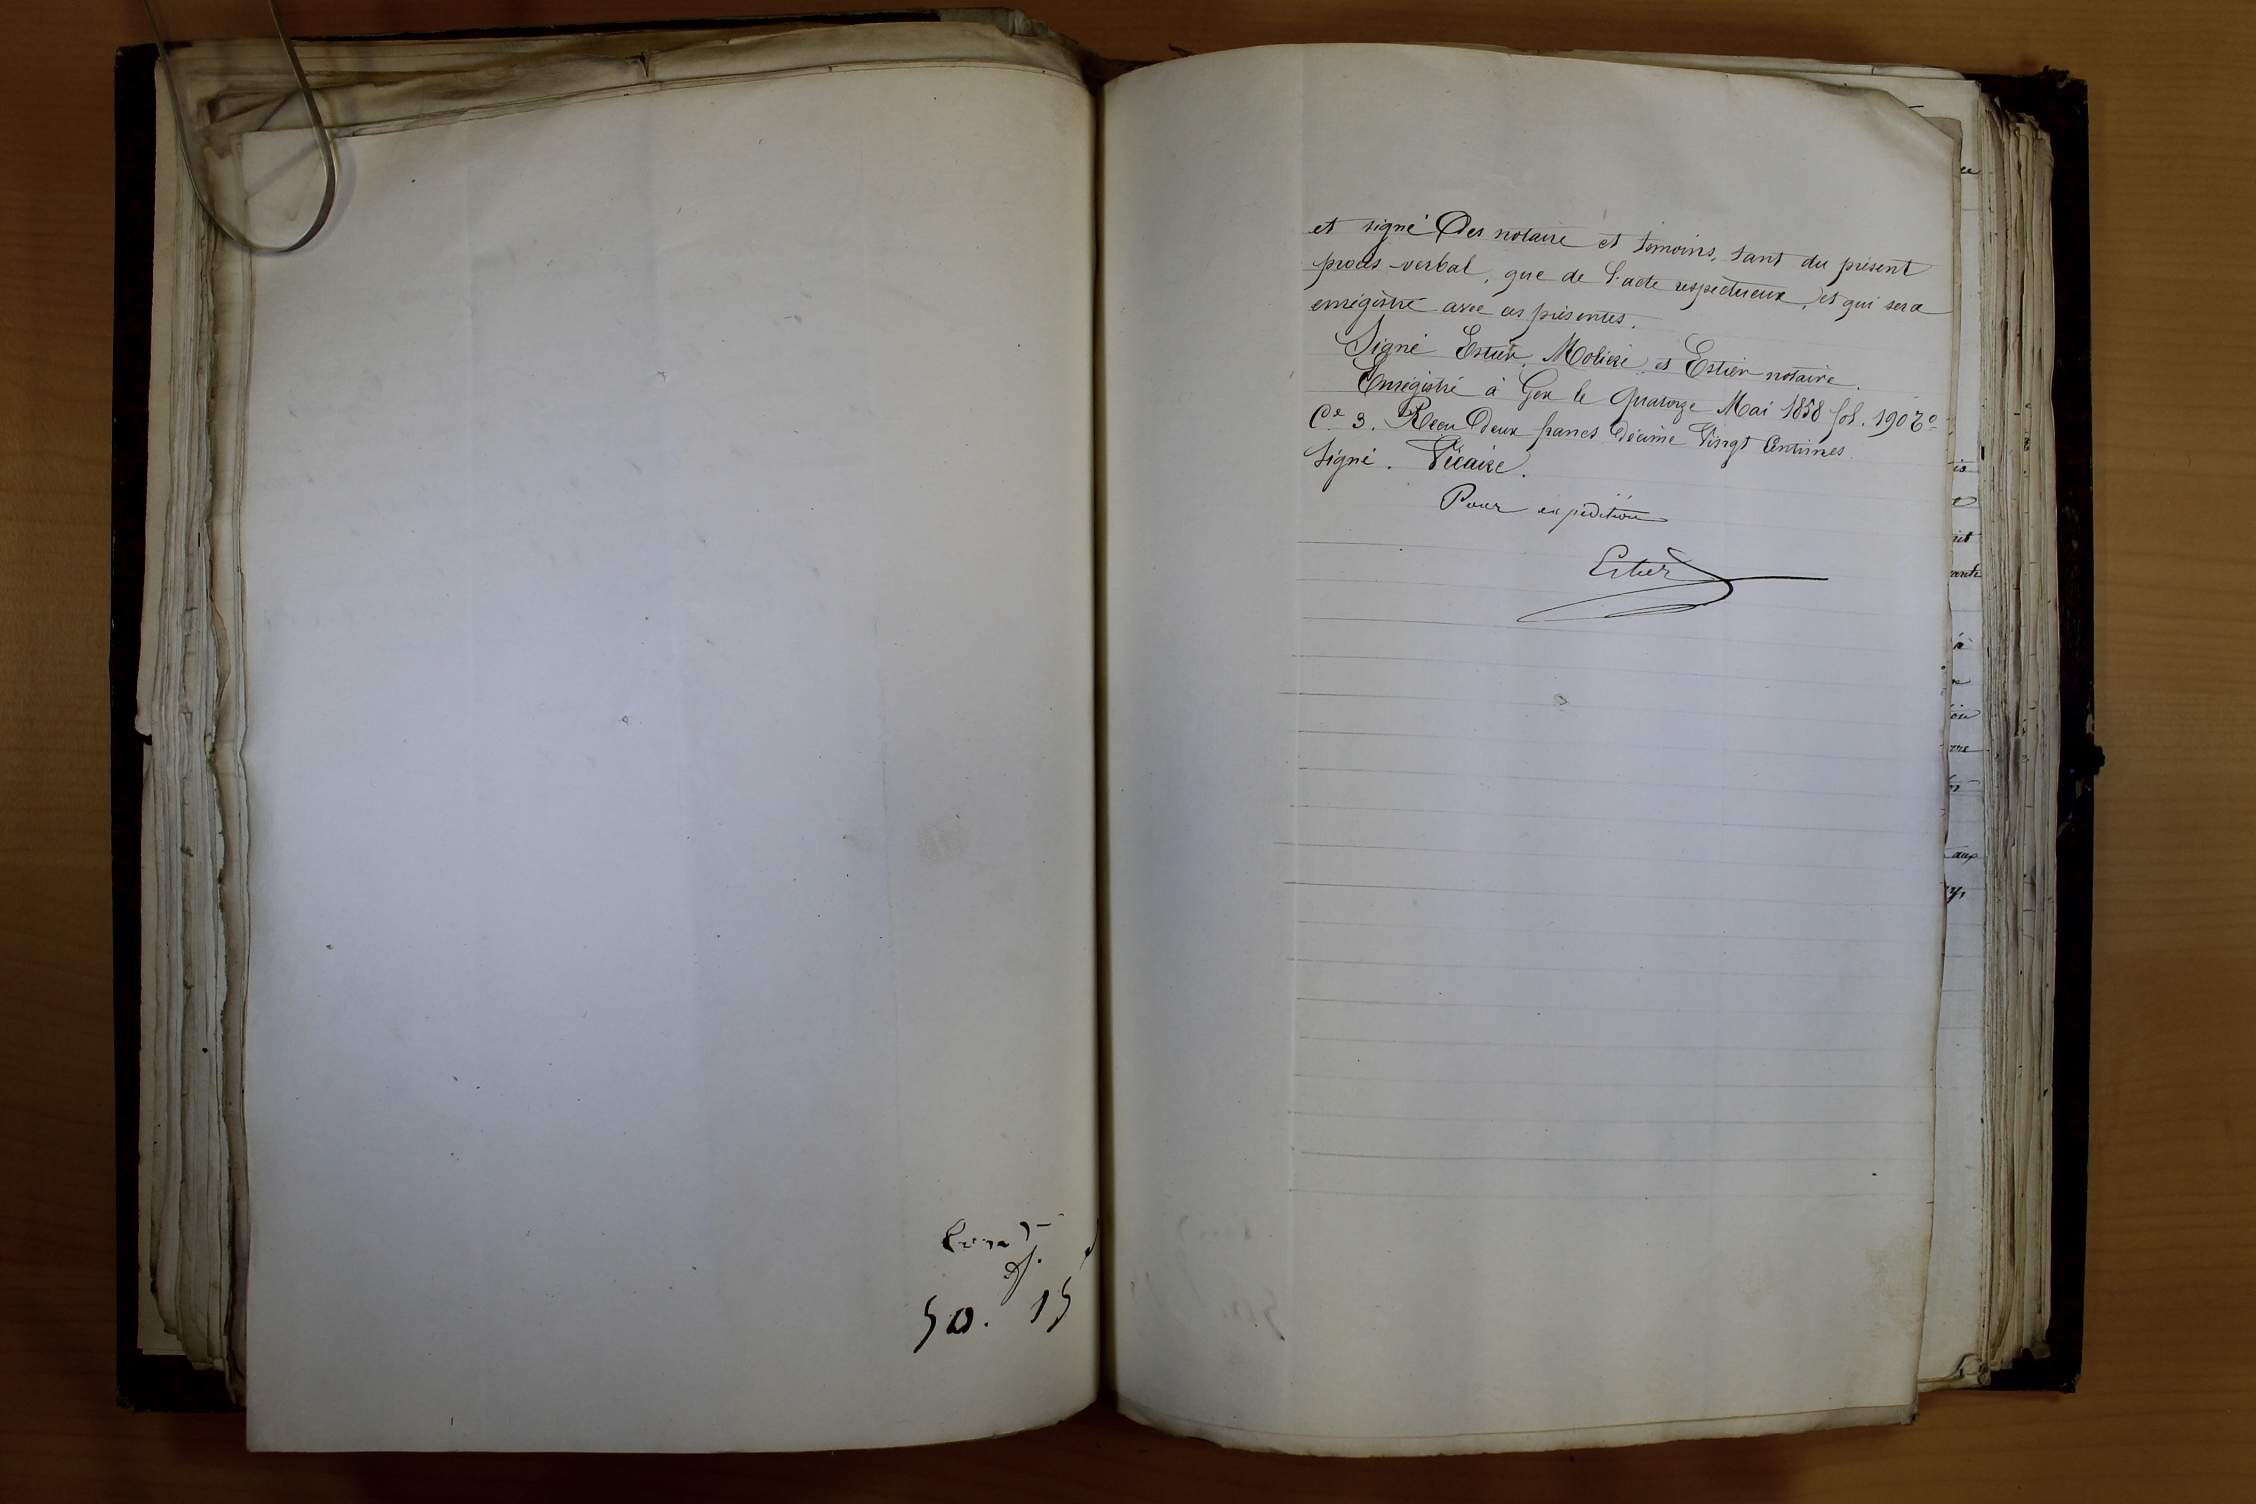 50. 15
et signé Des notaire et témoins, tant du présent
procès-verbal, que de l'acte respectueux, et qui sera
enrégistré avec ces présentes.
Signé Estier, Molière, et Estier notaire.
Enrégistré à Gex le Quatorze Mai 1858 fol. 190 Vo
Ce 3. Reçu Deux francs Décime Vingt Centimes
Signé. Vicaire.
Pour expédition
Estier